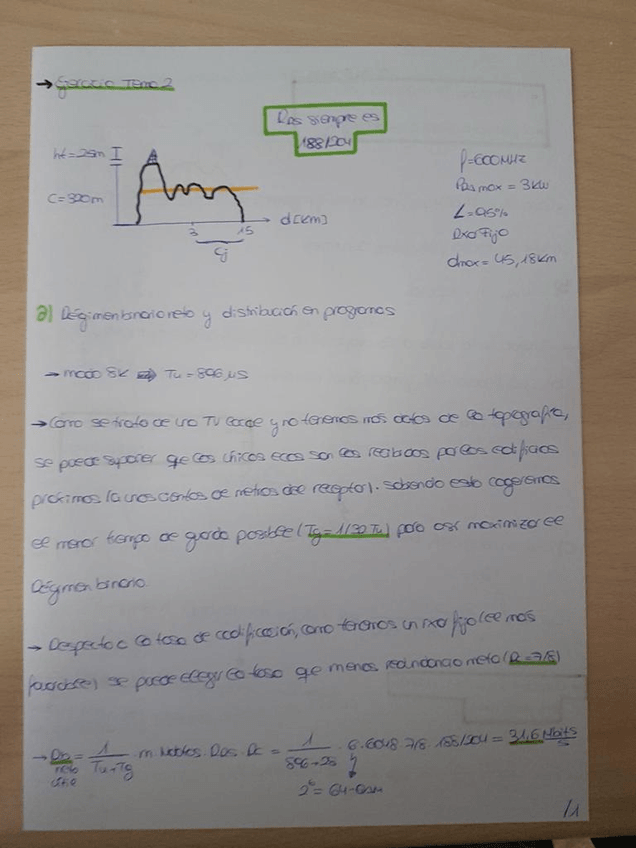 → Ejercicio Tema 2
Ras siempre es
188/204
ht=25m
C=320m
d[km]
3
15
Cj
f=600MHz
PBs max = 3kw
L=95%
RxO Fijo
dmax = 45,18km
a) Régimen binario neto y distribución en programas
→ modo 8k ⇒ Tu=896μs
→ Como se trata de una TV local y no tenemos más datos de la topografía,
se puede suponer que los únicos ecos son los recibidos por los edificios
próximos (a unos cientos de metros del receptor). Sabiendo esto cogeremos
el menor tiempo de guarda posible (Tg=1/32 Tu) para así maximizar el
Régimen binario.
→ Respecto a la tasa de codificación, como tenemos un rxo fijo (el más
favorable) se puede elegir la tasa que menos redundancia meta (R=7/8)
→ Rb = 1/(Tu+Tg) · m · Ndatos · Ras · Rc = 1/(896+28) · 6 · 6048 · 7/8 · 188/204 = 31,6 Mbits/s
neto
útil
2^6 = 64-QAM
/1